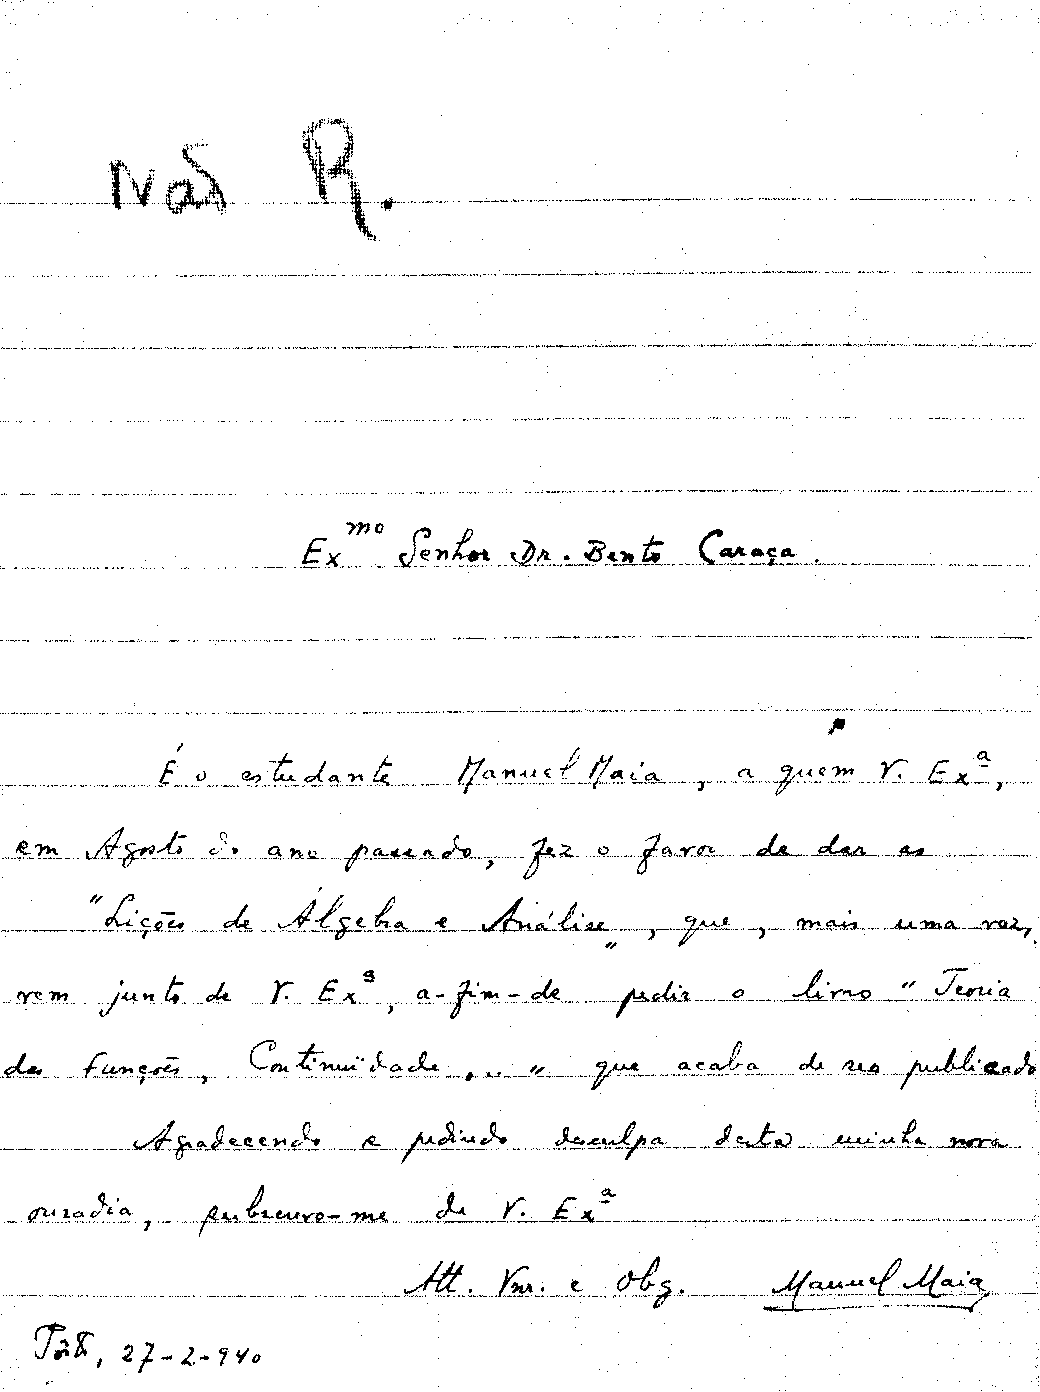 Não R.
Ex mo Senhor Dr. Bento Caraça.
É o estudante Manuel Maia, a quem V. Ex ª,
em Agosto do ano passado, fez o favor de dar as
"Lições de Álgebra e Análise", que, mais uma vez,
vem junto de V. Ex ª, a-fim-de pedir o livro "Teoria
das Funções, Continuïdade..." que acaba de ser publicado
Agradecendo e pedindo desculpa desta minha nova
ousadia, subscrevo-me de V. Ex ª
Att. Vnr. e Obg. Manuel Maia
27-2-940